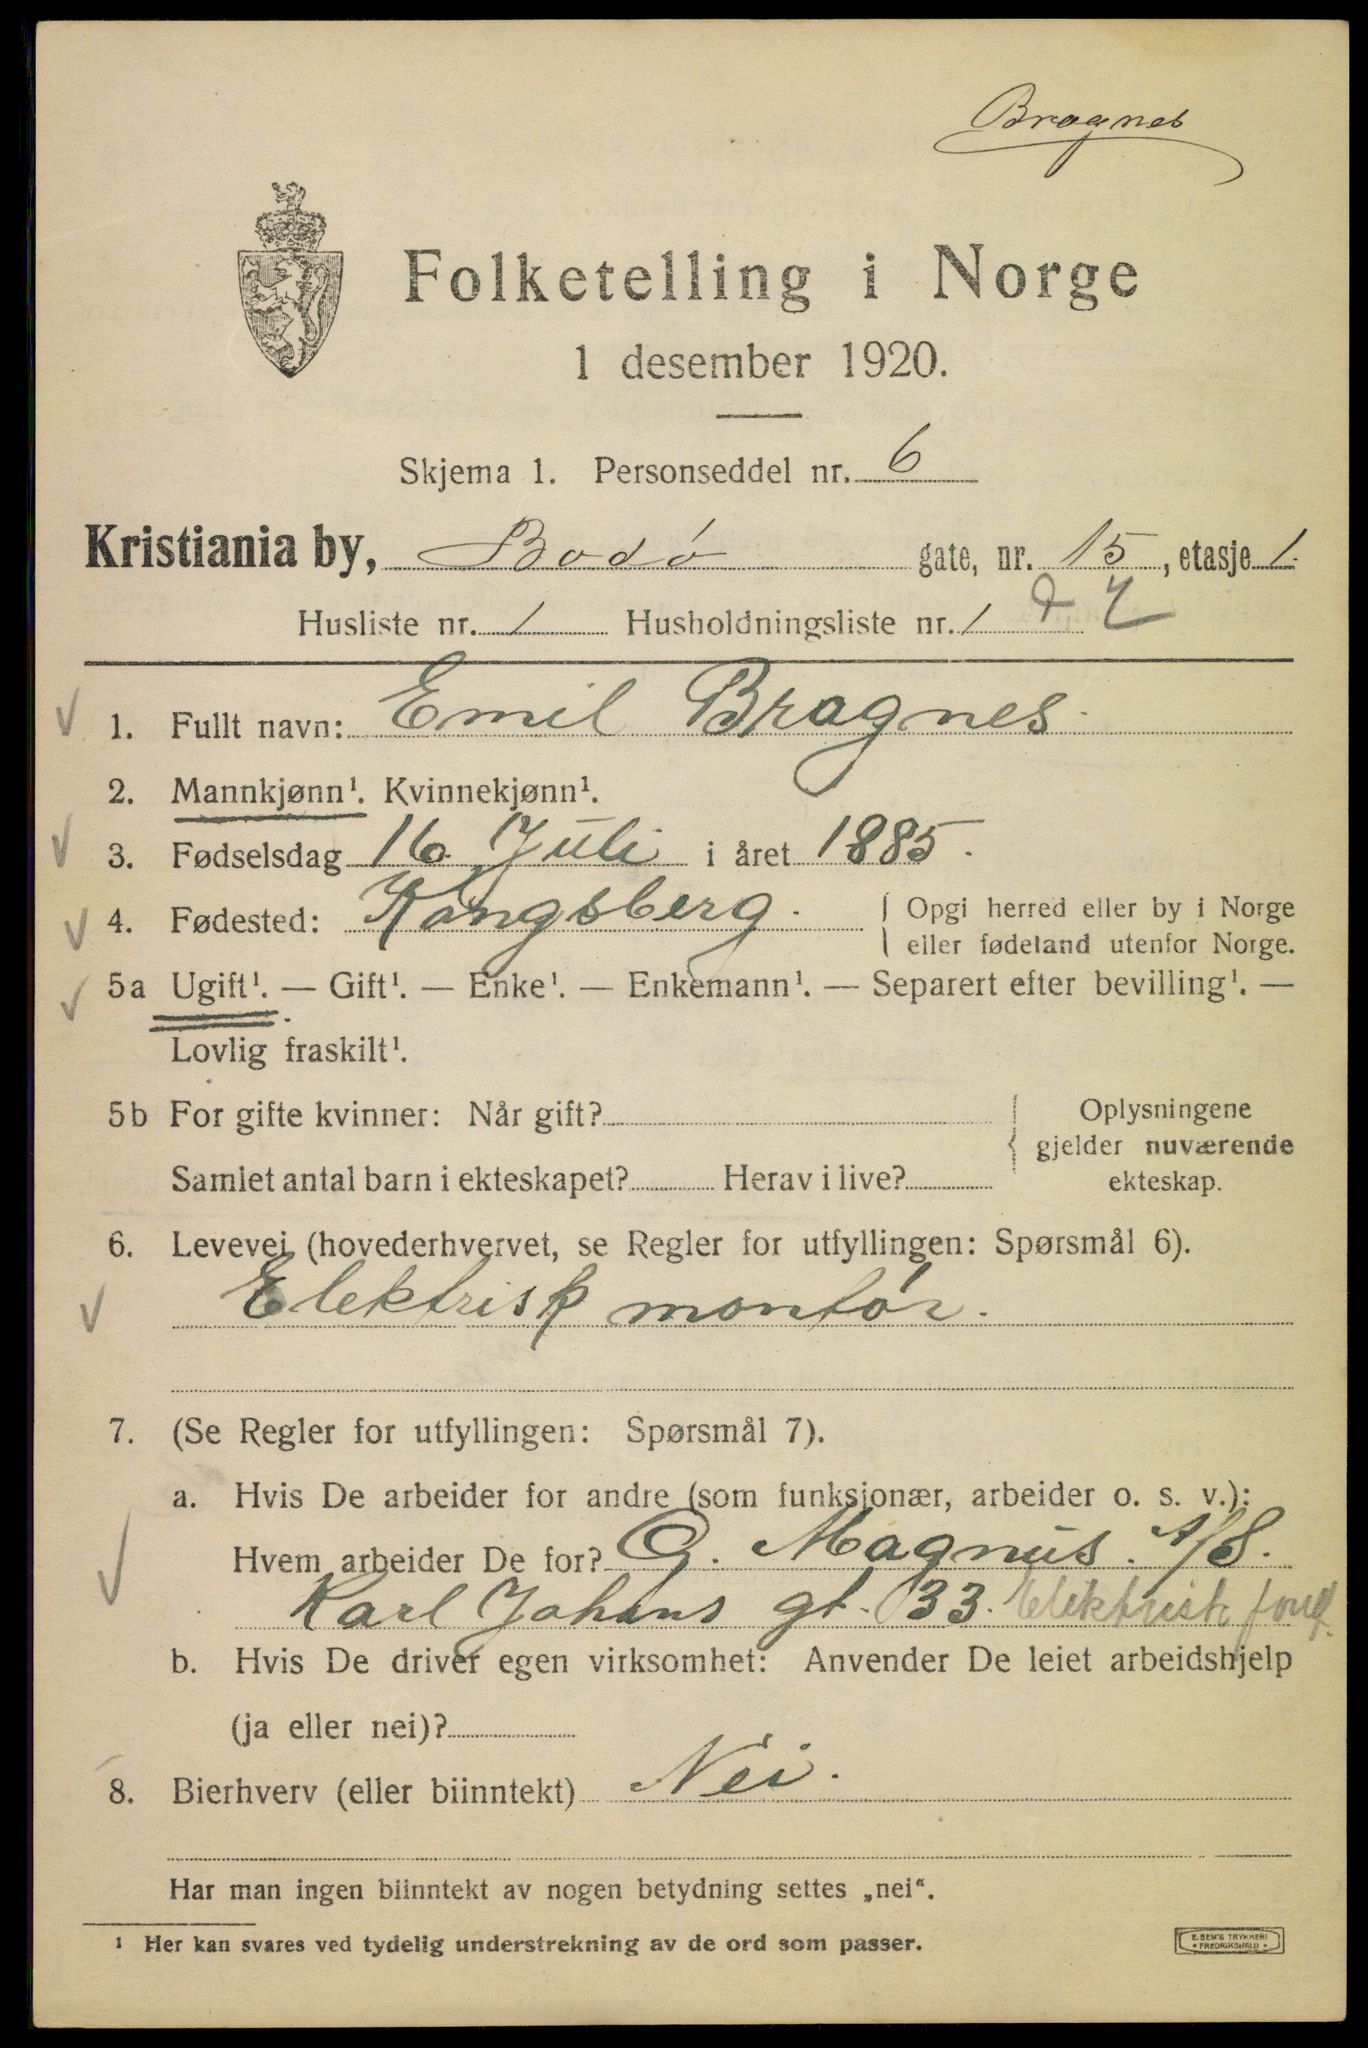 Bragnes
Folketelling i Norge
1 desember 1920.
Skjema 1. Personseddel nr. 6
Kristiania by, Bodø gate, nr. 15, etasje 1.
Husliste nr. 1 Husholdningsliste nr. 1
1. Fullt navn: Emil Bragnes.
2. Mannkjønn¹. Kvinnekjønn¹.
3. Fødselsdag 16. Juli i året 1885.
4. Fødested: Kongsberg. Opgi herred eller by i Norge
eller fødeland utenfor Norge.
5a Ugift¹. — Gift¹. — Enke¹. — Enkemann¹. — Separert efter bevilling¹. —
Lovlig fraskilt¹.
5b For gifte kvinner: Når gift? Oplysningene
gjelder nuværende
Samlet antal barn i ekteskapet? Herav i live? ekteskap.
6. Levevei (hovederhvervet, se Regler for utfyllingen: Spørsmål 6).
Elektrisk montør.
7. (Se Regler for utfyllingen: Spørsmål 7).
a. Hvis De arbeider for andre (som funksjonær, arbeider o. s. v.):
Hvem arbeider De for? G. Magnus. A/S.
Karl Johans gt. 33. Elektrisk
b. Hvis De driver egen virksomhet: Anvender De leiet arbeidshjelp
(ja eller nei)?
8. Bierhverv (eller biinntekt) Nei.
Har man ingen biinntekt av nogen betydning settes „nei“.
¹ Her kan svares ved tydelig understrekning av de ord som passer.
E. SEM'S TRYKKERI
• FREDRIKSHALD •